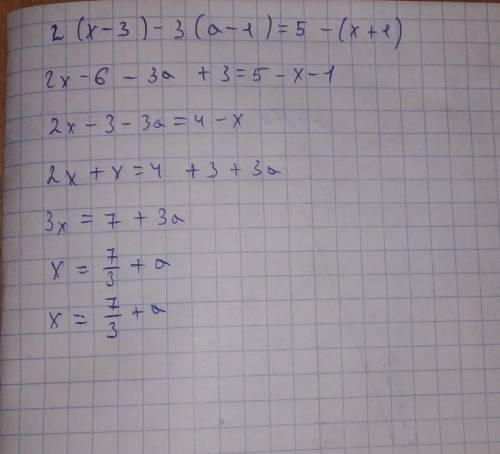 2 (x-3) - 3 (a-1) = 5 - (x+1)
2x - 6 - 3a + 3 = 5 - x - 1
2x - 3 - 3a = 4 - x
2x + x = 4 + 3 + 3a
3x = 7 + 3a
x = 7/3 + a
x = 7/3 + a